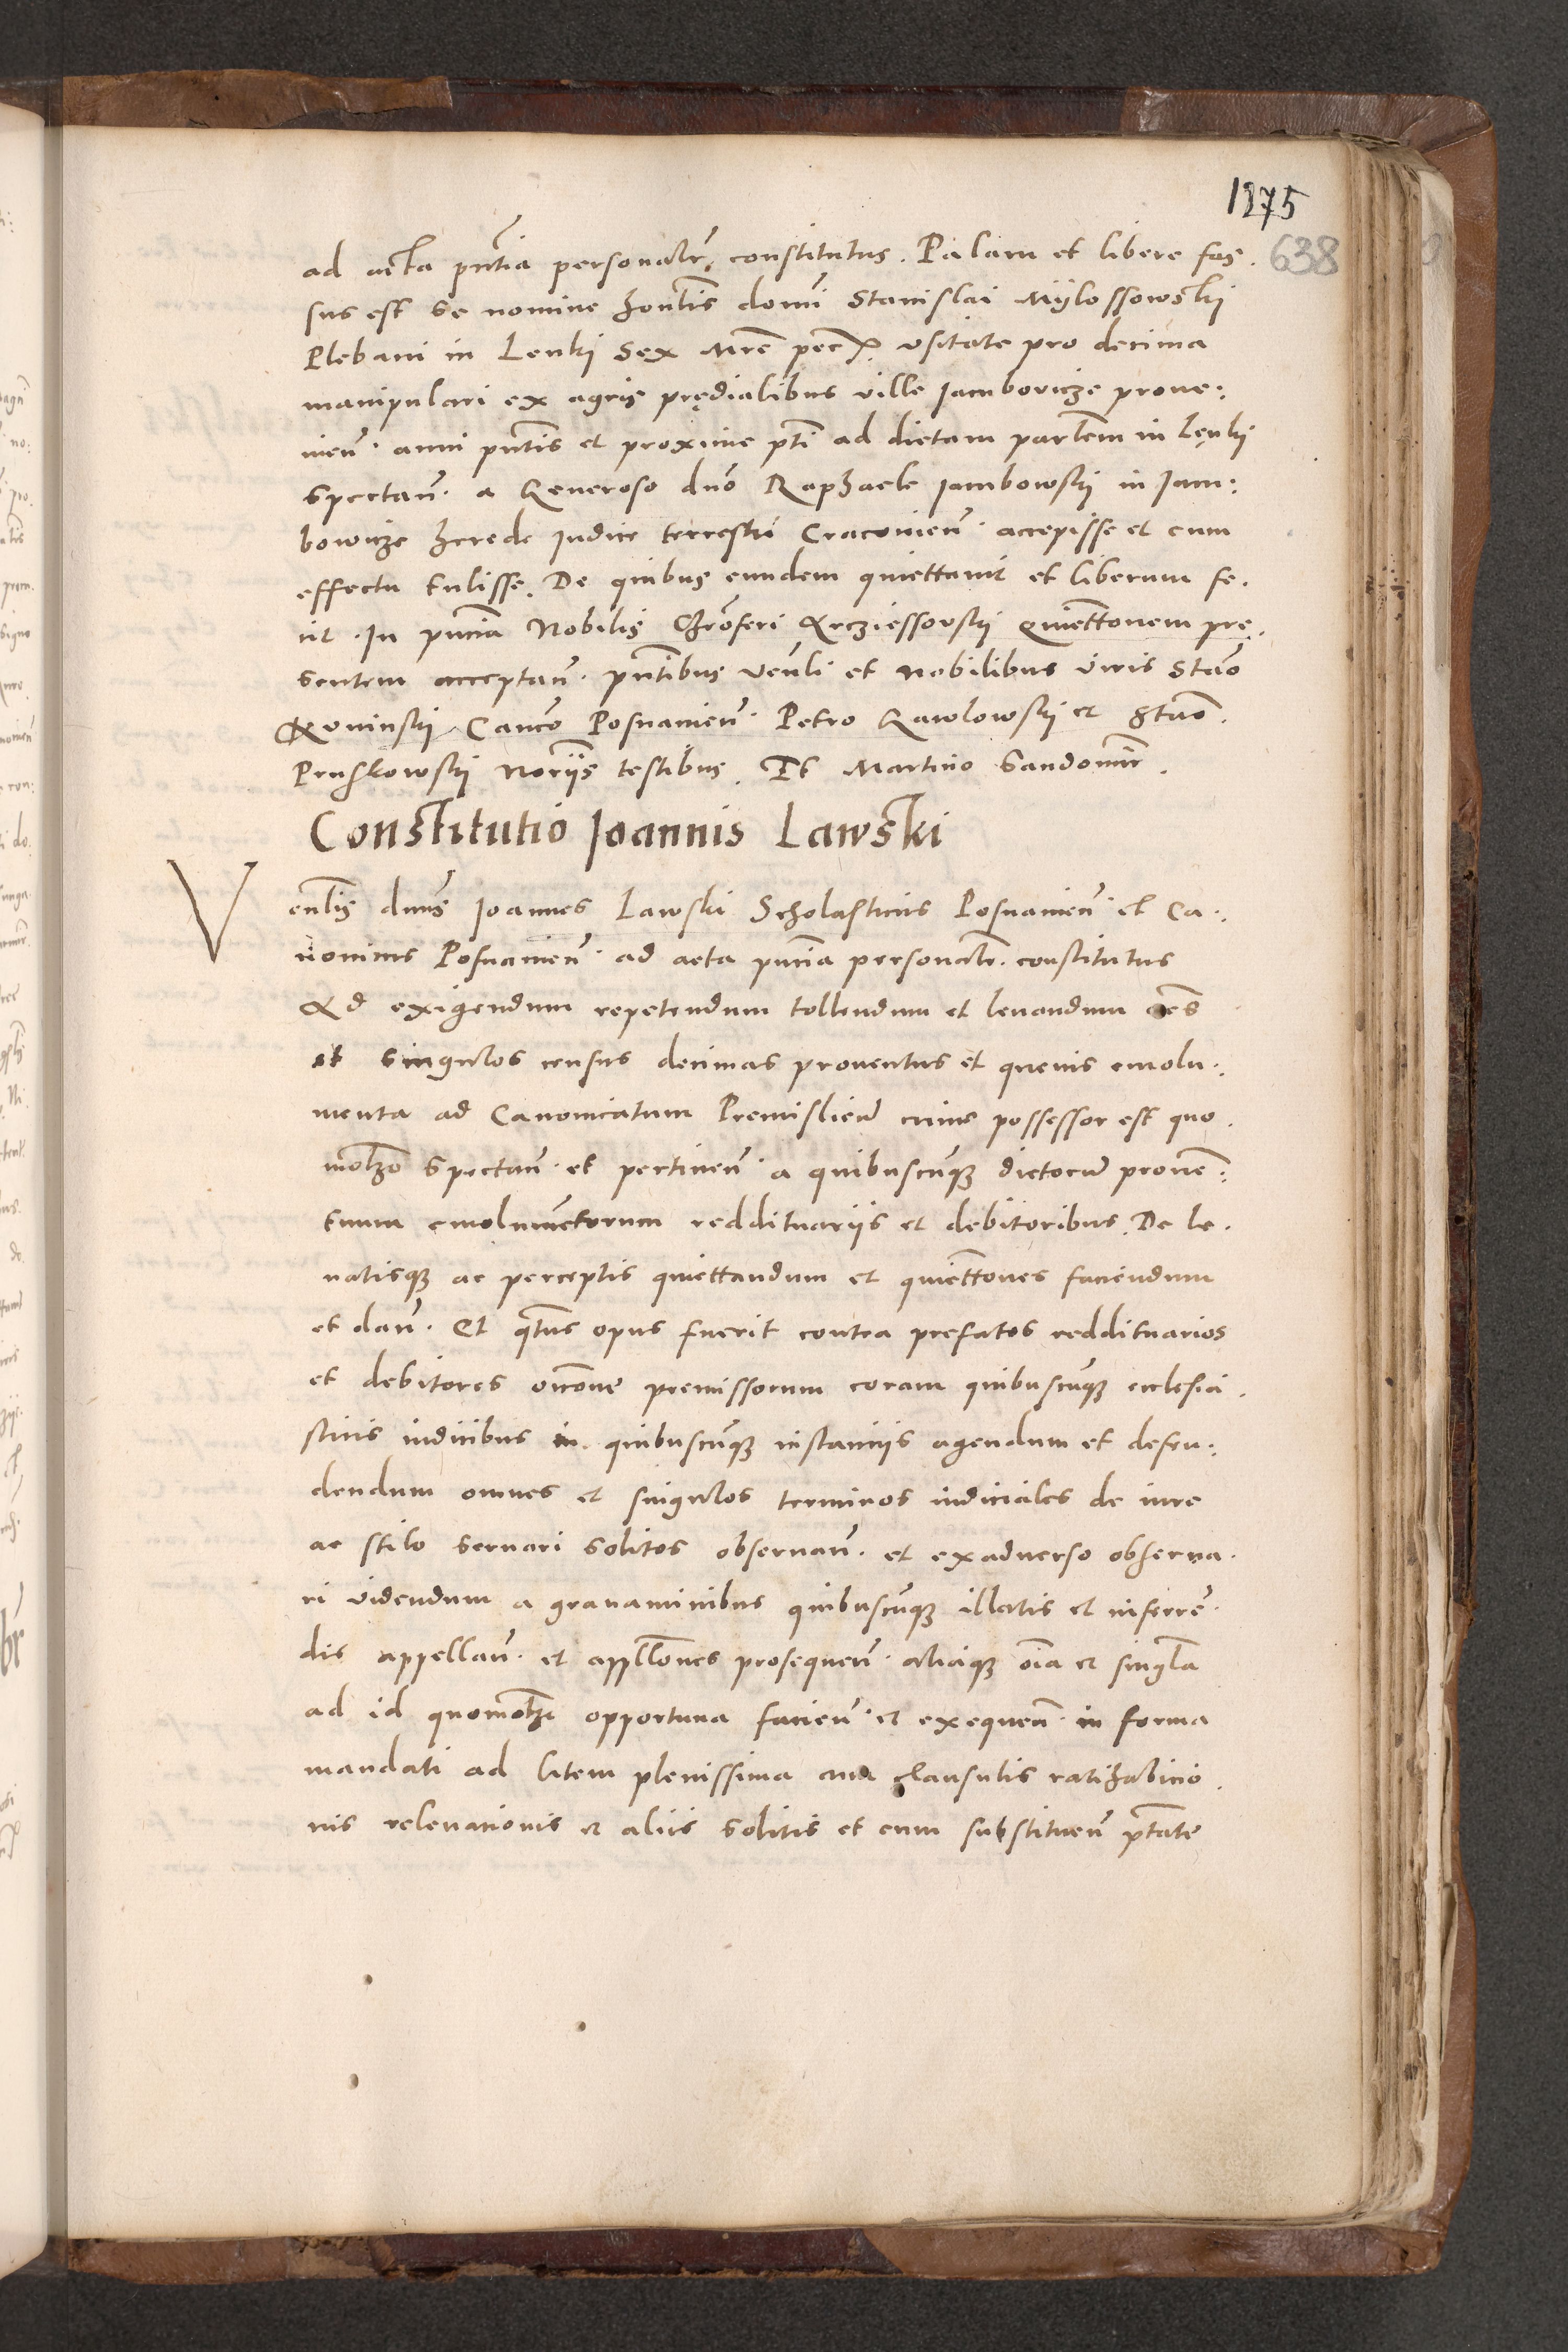 1275
638
ad acta pntia personalr. constitutus. Palam et libere fas.
sus est se nomine hontis domi Stanislai Mylossowski
Plebani in Lenki Sex Mrc pec x. usitate pro decima
manipulari ex agris prędialibus ville Jacubovicze prove:
nien. anni pntis et proxime pti ad dictam parlem in Lęnki
spectan. a Generoso dno Raphaele Jacubowski in Jacu:
bowicze herede Judice terrestri Cracovien. accepisse et cum
effectu tulisse. De quibus eundem quiettavit et liberum fe.
cit. In pncia Nobilis Chroferi quiettonem prę.
sentem acceptan. pntibus venli et Nobilibus viris Stao
Koninski Canco Posnanien. Petro Gawlowski et Stao.
Pruskowski Noriis testibus. Et Martino Sandomir.
Constitutio Joannis Lawski
Venlis dnus Joannes Lawski Scholasticus Posnanien. et Ca.
nonicus Posnanien. ad acta pncia personalr. constitutus
Ad exigendum repetendum tollendum et levandum oes
et singulos census decimas proventus et quevis emolu.
menta ad Canonicatum Premislien cuius possessor est quo.
molzo spectan. et pertinen. a quibuscunq dictorum proven:
tuum emolumetorum reddituariis et debitoribus. De le.
vatisq ac perceptis quiettandum et quiettones faciendum
et dan. Et qtus opus fuerit contra prefatos reddituarios
et debitores occone premissorum coram quibuscunq ecclesia.
sticis iudicibus in quibuscunq instanciis agendum et defen:
dendum omnes et singulos terminos iudiciales de iure
ac stilo servari solitos observan. et exadverso observa.
ri videndum a gravaminibus quibuscunq illatis et inferren.
dis appellan. et appllones prosequen. aliaq oia et singla
ad id quomolzt opportuna facien. et exequen. in forma
mandati ad litem plenissima cum clausulis ratihabicio.
nis relevacionis et aliis solitis et cum substituen ptate